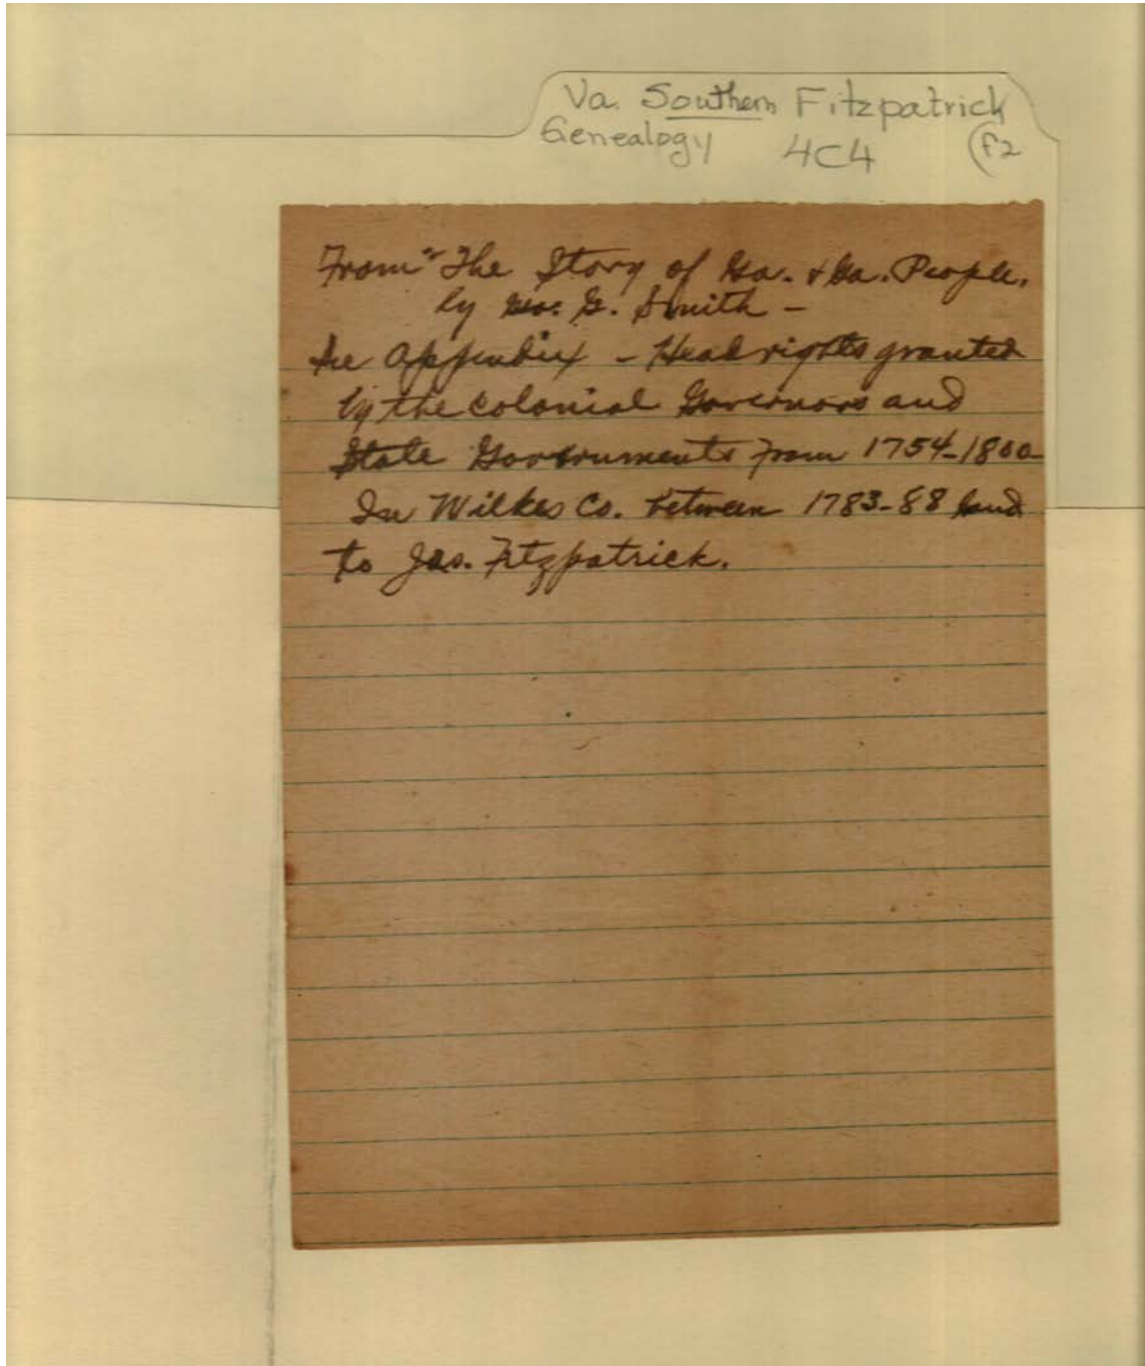 Va. Southern Fitzpatrick
Genealogy 4C4 (F2
From "The Story of Ga. & Ga. People.
by Geo. G. Smith –
See Appendix – Headrights granted
by the Colonial Governors and
State Governments from 1754-1800-
In Wilkes Co. between 1783-88 land
to Jas. Fitzpatrick.